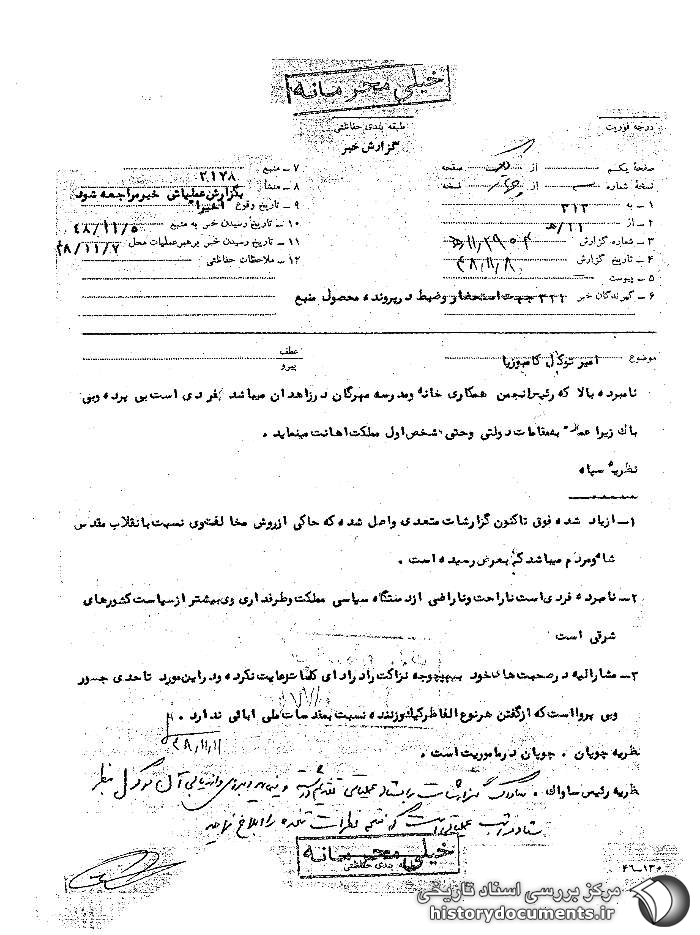 خیلی محرمانه
طبقه بندی حفاظتی
گزارش خبر
درجه فوریت
صفحهٔ یکم از صفحه
نسخهٔ شماره از نسخه
۱ـ به ۳۱۲
۲ـ از ۱۱/ﻫ
۳ـ شماره گزارش
۴ـ تاریخ گزارش ۴۸/۱۱/۸
۵ـ پیوست
۶ـ گیرندگان خبر ۳۲۱ جهت استحضار وضبط درپرونده محصول منبع
۷ـ منبع ۲۱۷۸
۸ـ منشأ بگزارش عملیاتی خبر مراجعه شود
۹ـ تاریخ وقوع اخیرا"
۱۰ـ تاریخ رسیدن خبر به منبع ۴۸/۱۱/۵
۱۱ـ تاریخ رسیدن خبر برهبر عملیات محل ۴۸/۱۱/۷
۱۲ـ ملاحظات حفاظتی
موضوع امیر توکل کامبوزیا
عطف
پیرو
نامبرده بالا که رئیس انجمن همکاری خانه ومدرسه مهرگان درزاهدان میباشد فردی است بی پرده وبی
باک زیرا عملا" بمقامات دولتی وحتی شخص اول مملکت اهانت مینماید .
نظریه سپاه
۱ـ ازیاد شده فوق تاکنون گزارشات متعددی واصل شده که حاکی ازروش مخالفتوی نسبت بانقلاب مقدس
شاه ومردم میباشد که بعرض رسیده است .
۲ـ نامبرده فردی است ناراحت وناراضی ازدستگاه سیاسی مملکت وطرفداری وی بیشتر ازسیاست کشورهای
شرقی است
۳ـ مشارالیه درصحبت های خود بهیچوجه نزاکت را درادای کلمات رعایت نکرده ودراین مورد تاحدی جسور
وبی پروا است که ازگفتن هرنوع الفاظ رکیک وزننده نسبت بمقدسات ملی ابائی ندارد .
۴۸/۱۱/۱۱
نظریه چوپان . چوپان درماموریت است .
نظریه رئیس ساواک .
خیلی محرمانه
طبقه بندی حفاظتی
۴۶ـ۱۳۰
مرکز بررسی اسناد تاریخی
historydocuments.ir